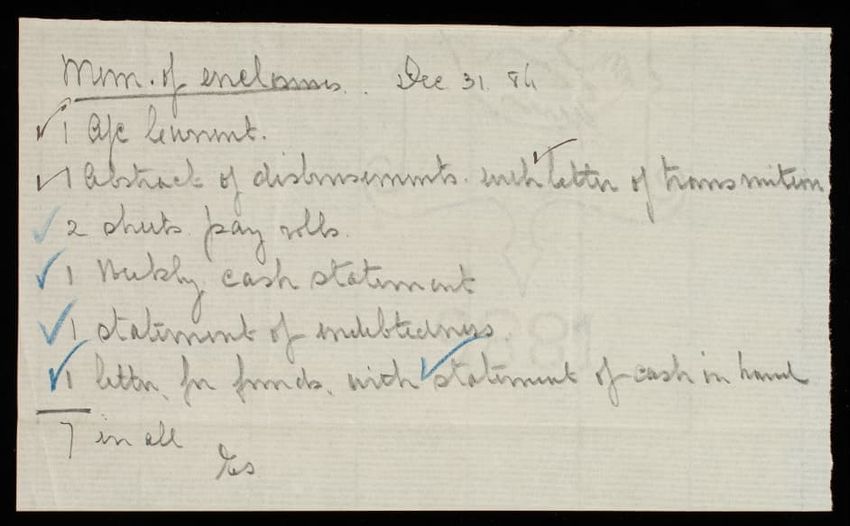 Mem. of enclosures. Dec 31. 84
1 a/c Current.
1 Abstract of disbursements. with letter of transmition
2 sheets pay rolls.
1 Weekly cash statement
1 statement of indebtedness.
1 letter, for funds, with statement of cash in hand
7 in all